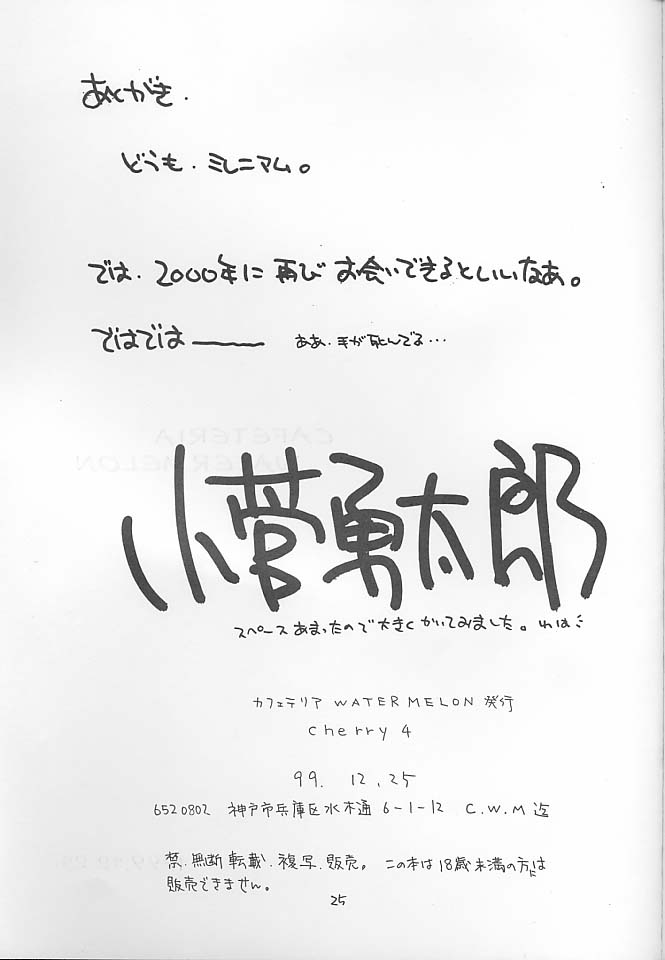 あとがき.
どうも.ミレニアム。
では.2000年に再びお会いできるといいなあ。
ではでは―― ああ.手が死んでる…
小菅勇太郎
スペースあまったので大きくかいてみました。わは
カフェテリア WATER MELON 発行
cherry 4
99. 12. 25
6520802 神戸市兵庫区水木通 6-1-12 C.W.M 迄
禁.無断転載.複写.販売。 この本は18歳未満の方には
販売できません。
25
CAFETERIA
WATER MELON